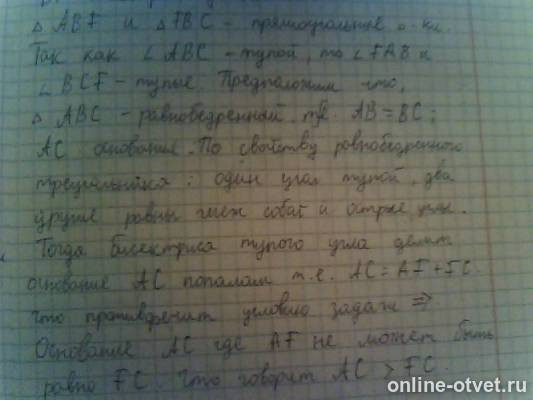 △ ABF и △ FBC - прямоугольные
Так как ∠ ABC - тупой, то ∠ FAB и
∠ BCF - тупые. Предположим что,
△ ABC - равнобедренный, AB = BC;
AC основание. По свойству равнобедренного
треугольника: один угол тупой, два
другие равны меж собой и острые углы.
Тогда биссектриса тупого угла делит
основание AC попалам т.е. AC = AF + FC.
что противоречит условию задачи ⇒
Основание AC где AF не может быть
равно FC. Что говорит AC > FC.
online-otvet.ru